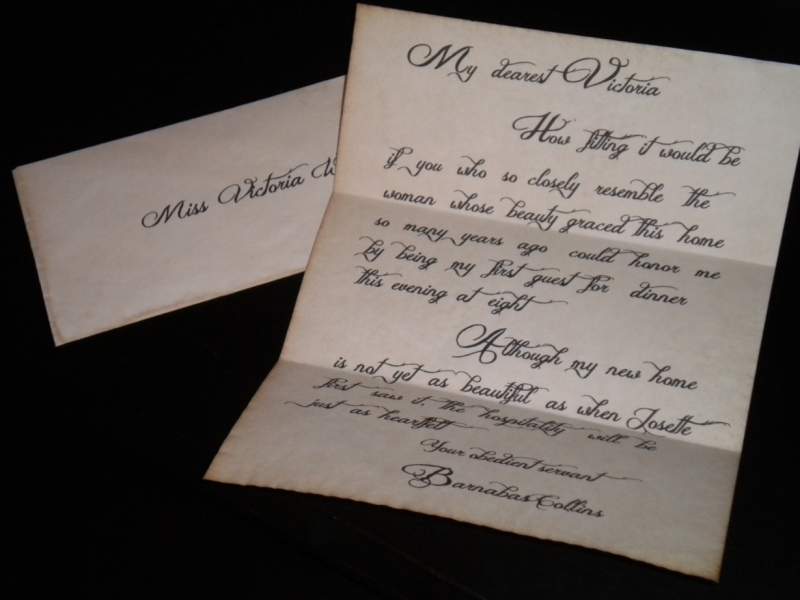 Miss Victoria W
My dearest Victoria
How fitting it would be
if you who so closely resemble the
woman whose beauty graced this home
so many years ago could honor me
by being my first guest for dinner
this evening at eight
Although my new home
is not yet as beautiful as when Josette
first saw it, the hospitality will be
just as heartfelt
Your obedient servant
Barnabas Collins